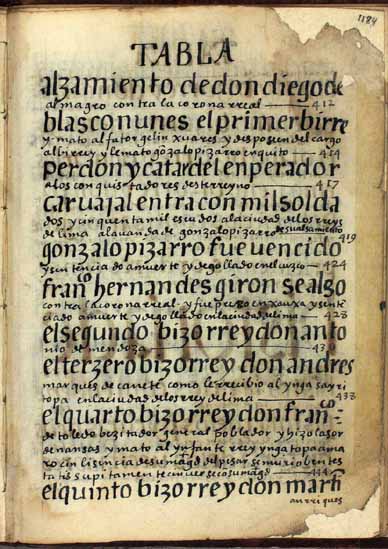 1184
TABLA
alzamiento de don diego de
almagro contra la corona rreal — 412
blasco nunes el primer birre
y mato al fator gelin xuares y desposeien del cargo
al birrey y le mato gonzalo pizarro en quito — 414
perdon y cata del enperador
a los conquistadores deste rreyno — 417
caruajal entra con mil solda
dos y cinquenta mil escudos a la ciudad de los rreys
de lima a la uanda de gonzalo pizarro desu alsamiento 419
gonzalo pizarro fue uencido
y sintencia do a muerte y degollado en el cuzco — 424
franco hernandes giron se alzo
contra la corona rreal y fue preso en xauxa y sinten
ciado a muerte y degollado en la ciudad de lima — 428
el segundo bizorrey don anto
nio de mendoza — 430
el terzero bizorrey don andres
marques de canete como le rrecibio al ynga sayri
topa en la ciudad de los rrey de lima — 438
el quarto bizorrey don franco
de toledo bezitador general poblador y hizo las or
denansas y mato al ynfante rrey ynga topa ama
ro cin lisencia de su magd
el quinto bizorrey don marti
anrriques